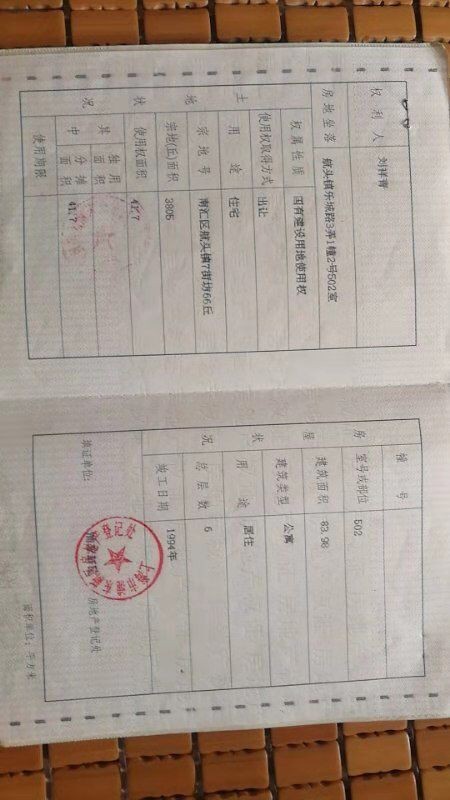 权利人 刘祥青
房地坐落 航头镇乐城路3弄1幢2号502室
土地状况
权属性质 国有建设用地使用权
使用权取得方式 出让
用途 住宅
宗地号 南汇区航头镇7街坊66丘
宗地(丘)面积 3805
使用权面积 41.7
其中
独用面积
分摊面积 41.7
使用期限
房屋状况
幢号
室号或部位 502
建筑面积 83.96
建筑类型 公寓
用途 居住
总层数 6
竣工日期 1994年
填证单位:
房地产登记处
登记处
面积单位:平方米